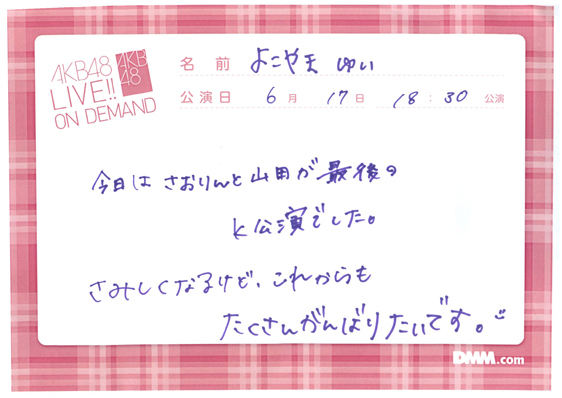 AKB48
LIVE!!
ON DEMAND
AKB
48
名前 よこやま ゆい
公演日 6月 17日 18:30 公演
今日は さおりんと山田が最後の
K公演でした。
さみしくなるけど、これからも
たくさんがんばりたいです。
DMM.com